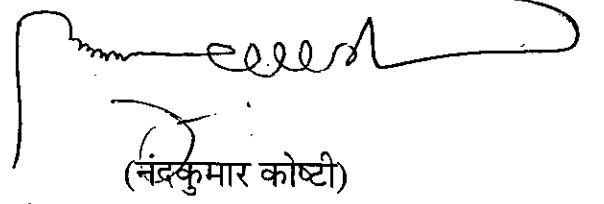 (नंदकुमार कोष्टी)